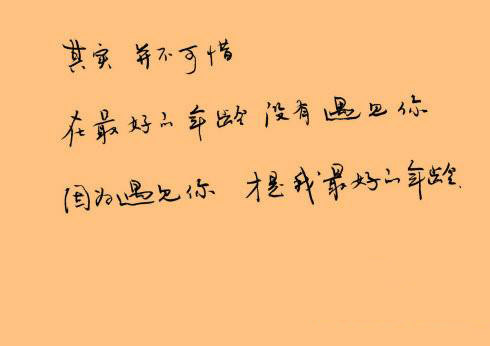 其实 并不可惜
在最好的年龄没有遇见你
因为遇见你 才是我最好的年龄.